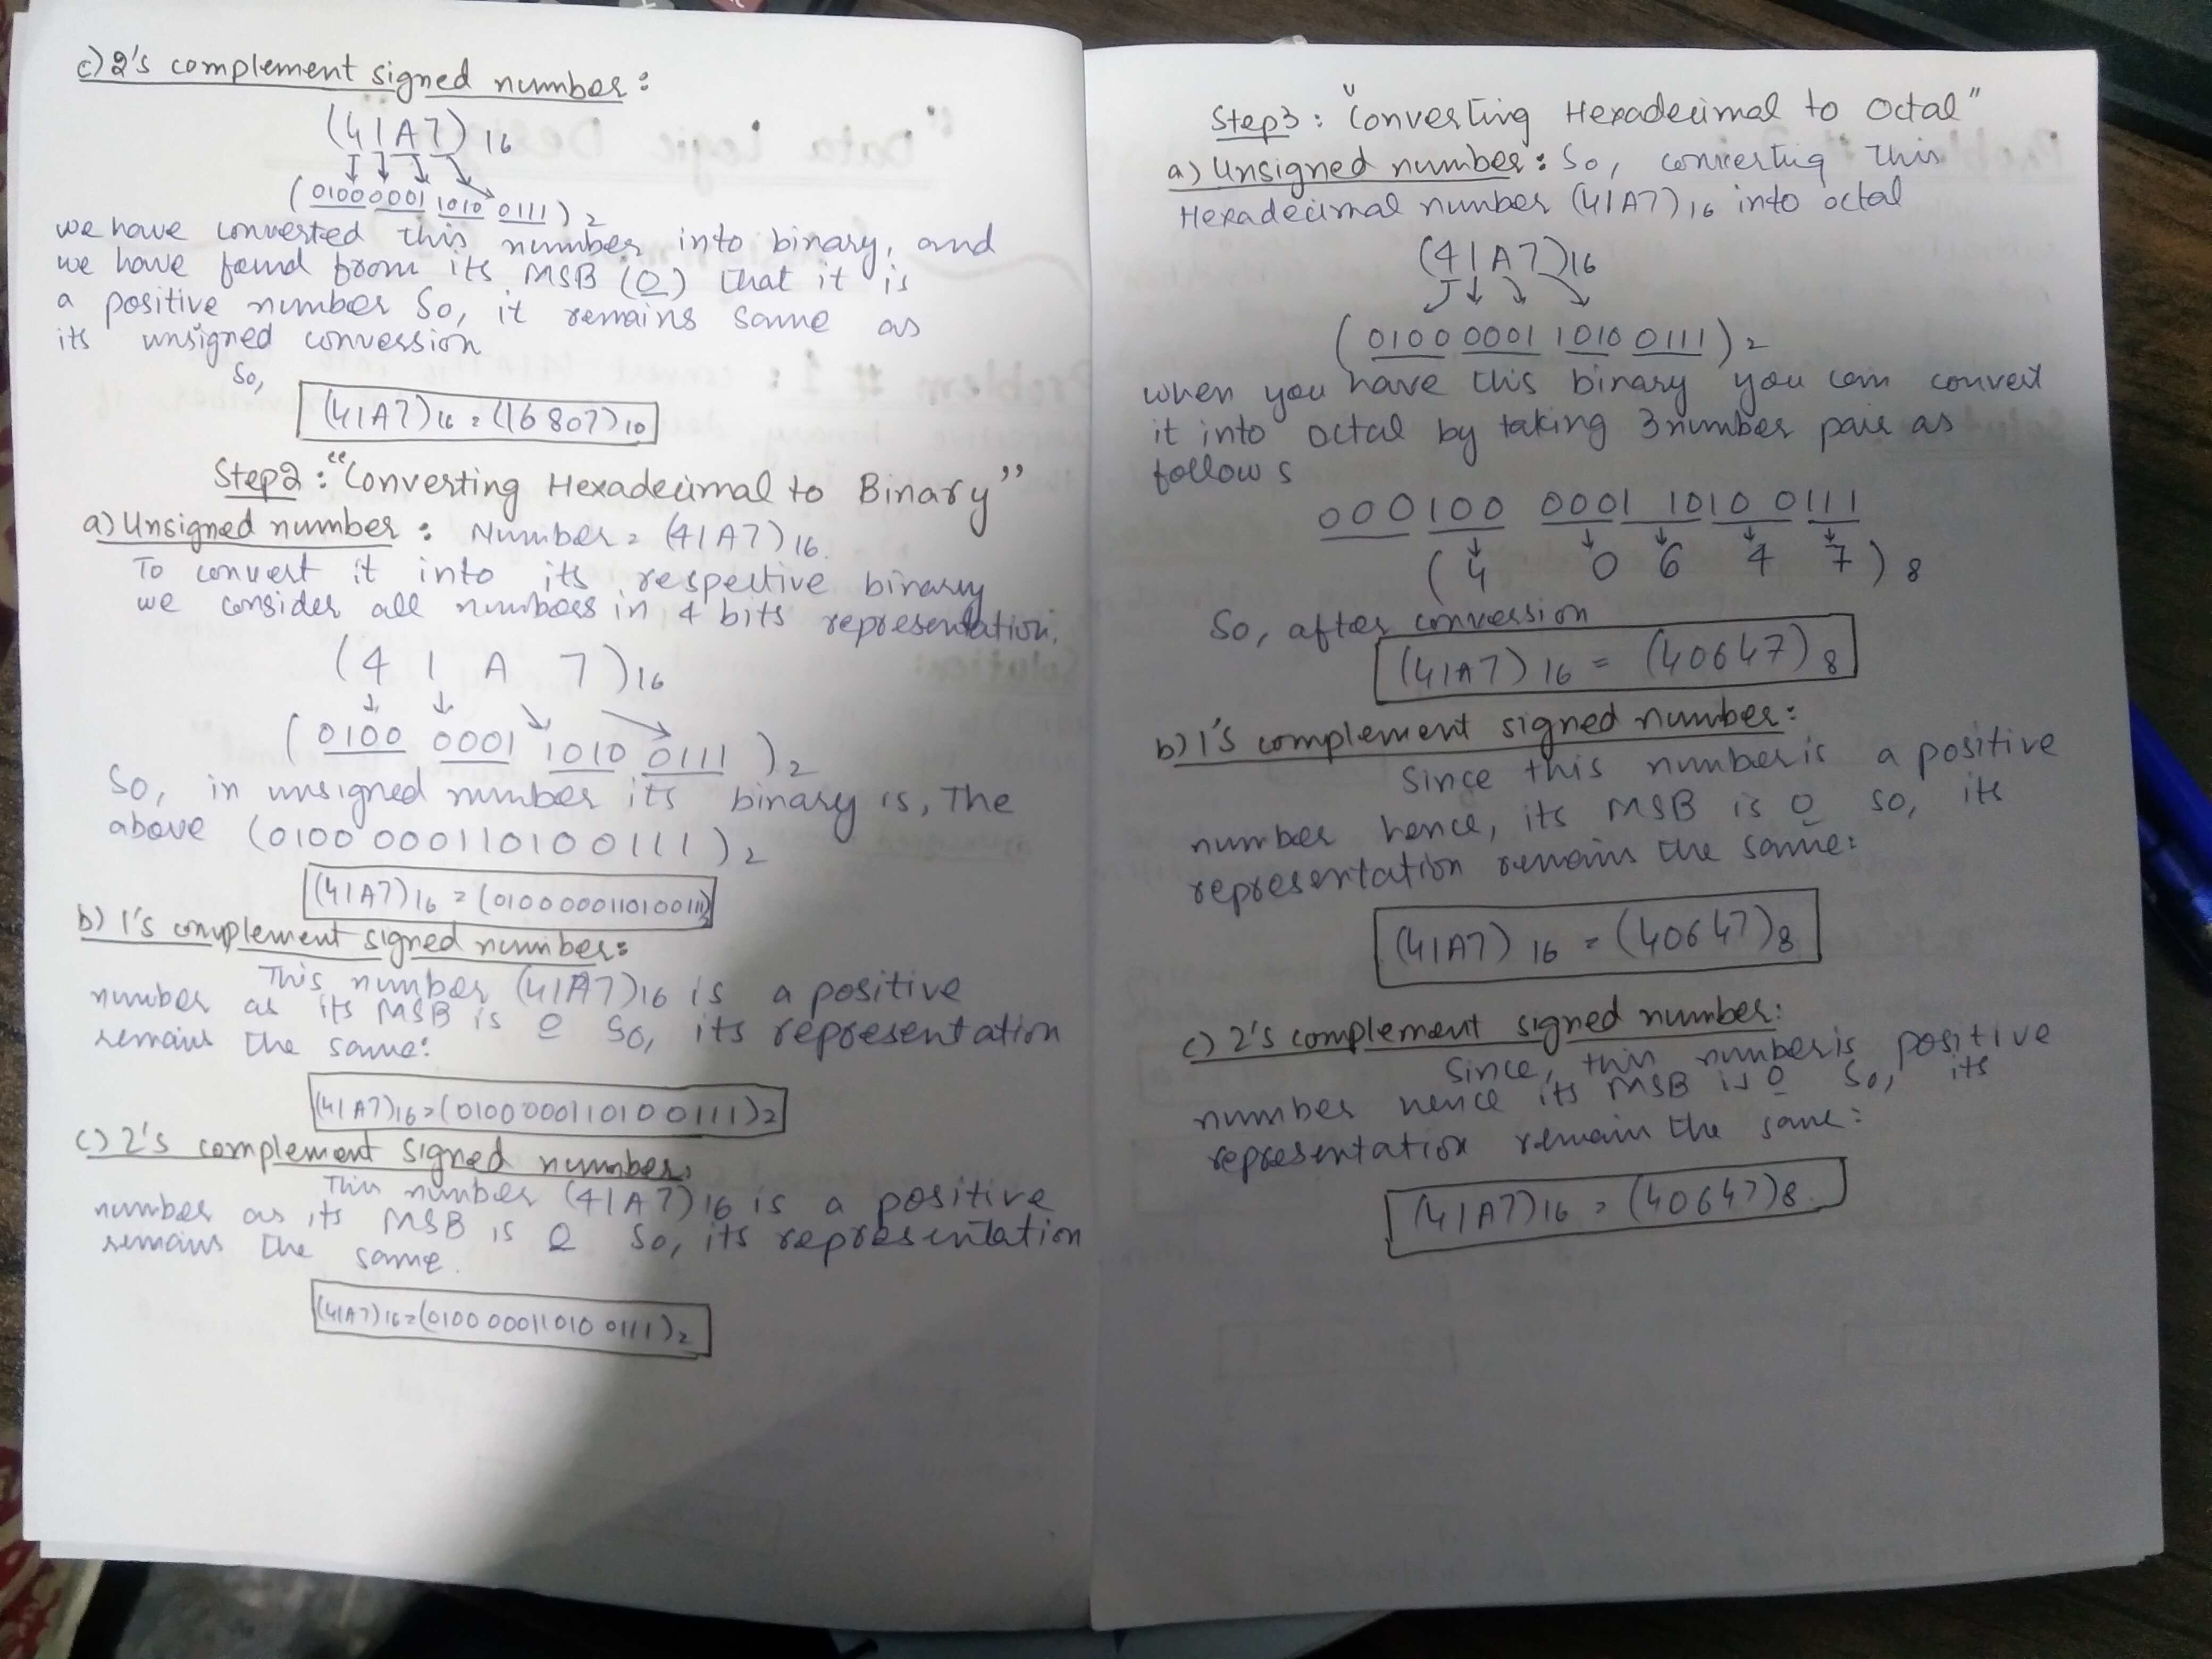 c) 2's complement signed number:
(41A7)16
(0100 0001 1010 0111)2
we have converted this number into binary, and
we have found from its MSB (0) that it is
a positive number So, it remains same as
its unsigned conversion
So,
(41A7)16 = (16807)10
Step2: "Converting Hexadecimal to Binary"
a) Unsigned number: Number = (41A7)16.
To convert it into its respective binary
we consider all numbers in 4 bits representation.
(4 1 A 7)16
(0100 0001 1010 0111)2
So, in unsigned number its binary is, The
above (0100 000110100111)2
(41A7)16 = (0100000110100111)2
b) 1's complement signed number:
This number (41A7)16 is a positive
number as its MSB is 0 So, its representation
remains the same:
(41A7)16 = (0100000110100111)2
c) 2's complement signed number:
This number (41A7)16 is a positive
number as its MSB is 0 So, its representation
remains the same.
(41A7)16 = (0100 00011010 0111)2
Step3: "Converting Hexadecimal to Octal"
a) Unsigned number: So, converting this
Hexadecimal number (41A7)16 into octal
(41A7)16
(0100 0001 1010 0111)2
when you have this binary you can convert
it into octal by taking 3 number pair as
follows
000100 0001 1010 0111
(4 0 6 4 7)8
So, after conversion
(41A7)16 = (40647)8
b) 1's complement signed number:
Since this number is a positive
number hence, its MSB is 0 so, its
representation remains the same:
(41A7)16 = (40647)8
c) 2's complement signed number:
Since, this number is positive
number hence its MSB is 0 So, its
representation remain the same:
(41A7)16 = (40647)8